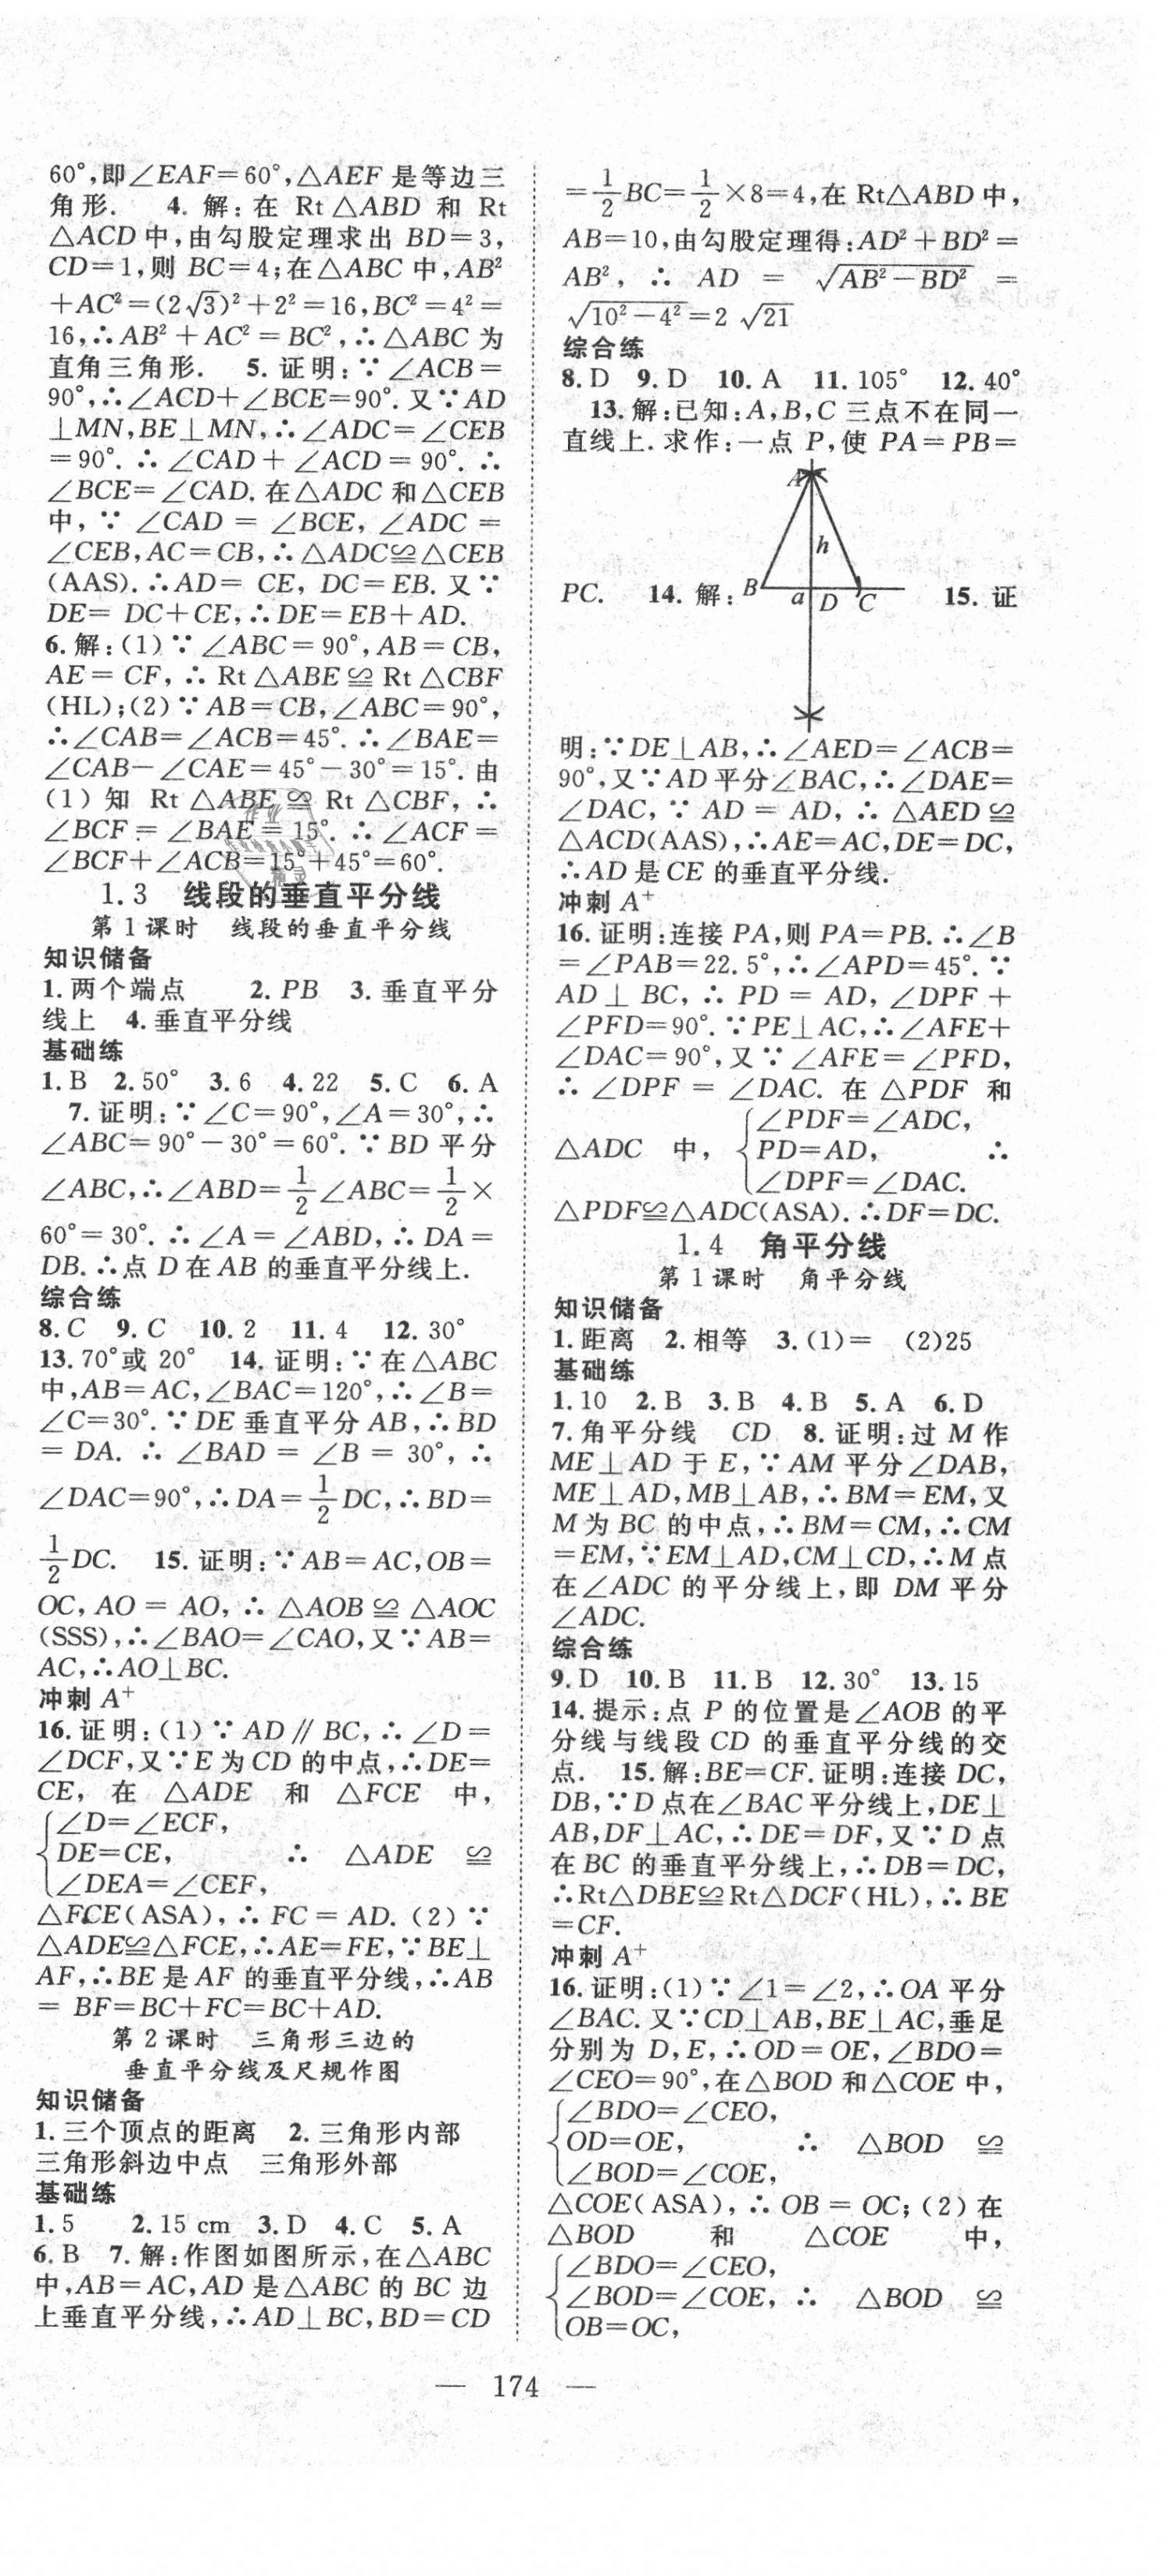 60°,即∠EAF=60°,△AEF 是等边三
角形. 4. 解:在 Rt △ABD 和 Rt
△ACD 中,由勾股定理求出 BD=3,
CD=1,则 BC=4;在△ABC 中,AB²
+AC²=(2√3)²+2²=16,BC²=4²=
16,∴AB²+AC²=BC²,∴△ABC 为
直角三角形. 5. 证明:∵∠ACB=
90°,∴∠ACD+∠BCE=90°.又∵AD
⊥MN,BE⊥MN,∴∠ADC=∠CEB
=90°.∴∠CAD+∠ACD=90°.∴
∠BCE=∠CAD.在△ADC 和△CEB
中,∵∠CAD=∠BCE,∠ADC=
∠CEB,AC=CB,∴△ADC≌△CEB
(AAS).∴AD=CE,DC=EB.又∵
DE=DC+CE,∴DE=EB+AD.
6.解:(1)∵∠ABC=90°,AB=CB,
AE=CF,∴Rt△ABE≌Rt△CBF
(HL);(2)∵AB=CB,∠ABC=90°,
∴∠CAB=∠ACB=45°.∴∠BAE=
∠CAB-∠CAE=45°-30°=15°.由
(1)知 Rt△ABE≌Rt△CBF,∴
∠BCF=∠BAE=15°.∴∠ACF=
∠BCF+∠ACB=15°+45°=60°.
1.3 线段的垂直平分线
第1课时 线段的垂直平分线
知识储备
1.两个端点 2.PB 3.垂直平分
线上 4.垂直平分线
基础练
1.B 2.50° 3.6 4.22 5.C 6.A
7.证明:∵∠C=90°,∠A=30°,∴
∠ABC=90°-30°=60°.∵BD 平分
∠ABC,∴∠ABD=1/2∠ABC=1/2×
60°=30°.∴∠A=∠ABD,∴DA=
DB.∴点 D 在 AB 的垂直平分线上.
综合练
8.C 9.C 10.2 11.4 12.30°
13.70°或 20° 14.证明:∵在△ABC
中,AB=AC,∠BAC=120°,∴∠B=
∠C=30°.∵DE 垂直平分 AB,∴BD
=DA.∴∠BAD=∠B=30°,∴
∠DAC=90°,∴DA=1/2DC,∴BD=
1/2DC. 15.证明:∵AB=AC,OB=
OC,AO=AO,∴△AOB≌△AOC
(SSS),∴∠BAO=∠CAO,又∵AB=
AC,∴AO⊥BC.
冲刺 A⁺
16.证明:(1)∵AD∥BC,∴∠D=
∠DCF,又∵E 为 CD 的中点,∴DE=
CE,在 △ADE 和 △FCE 中,
∠D=∠ECF,
DE=CE, ∴ △ADE ≌
∠DEA=∠CEF,
△FCE(ASA),∴FC=AD.(2)∵
△ADE≌△FCE,∴AE=FE,∵BE⊥
AF,∴BE 是 AF 的垂直平分线,∴AB
=BF=BC+FC=BC+AD.
第2课时 三角形三边的
垂直平分线及尺规作图
知识储备
1.三个顶点的距离 2.三角形内部
三角形斜边中点 三角形外部
基础练
1.5 2.15 cm 3.D 4.C 5.A
6.B 7.解:作图如图所示,在△ABC
中,AB=AC,AD 是△ABC 的 BC 边
上垂直平分线,∴AD⊥BC,BD=CD
=1/2BC=1/2×8=4,在 Rt△ABD 中,
AB=10,由勾股定理得:AD²+BD²=
AB²,∴AD=√(AB²-BD²)=
√(10²-4²)=2√21
综合练
8.D 9.D 10.A 11.105° 12.40°
13.解:已知:A,B,C 三点不在同一
直线上.求作:一点 P,使 PA=PB=
A
h
PC. 14.解: B a D C 15.证
明:∵DE⊥AB,∴∠AED=∠ACB=
90°,又∵AD 平分∠BAC,∴∠DAE=
∠DAC,∵AD=AD,∴△AED≌
△ACD(AAS),∴AE=AC,DE=DC,
∴AD 是 CE 的垂直平分线.
冲刺 A⁺
16.证明:连接 PA,则 PA=PB.∴∠B
=∠PAB=22.5°,∴∠APD=45°.∵
AD⊥BC,∴PD=AD,∠DPF+
∠PFD=90°.∵PE⊥AC,∴∠AFE+
∠DAC=90°,又∵∠AFE=∠PFD,
∴∠DPF=∠DAC.在△PDF 和
∠PDF=∠ADC,
△ADC 中, PD=AD, ∴
∠DPF=∠DAC.
△PDF≌△ADC(ASA).∴DF=DC.
1.4 角平分线
第1课时 角平分线
知识储备
1.距离 2.相等 3.(1)= (2)25
基础练
1.10 2.B 3.B 4.B 5.A 6.D
7.角平分线 CD 8.证明:过 M 作
ME⊥AD 于 E,∵AM 平分∠DAB,
ME⊥AD,MB⊥AB,∴BM=EM,又
M 为 BC 的中点,∴BM=CM,∴CM
=EM,∵EM⊥AD,CM⊥CD,∴M 点
在∠ADC 的平分线上,即 DM 平分
∠ADC.
综合练
9.D 10.B 11.B 12.30° 13.15
14.提示:点 P 的位置是∠AOB 的平
分线与线段 CD 的垂直平分线的交
点. 15.解:BE=CF.证明:连接 DC,
DB,∵D 点在∠BAC 平分线上,DE⊥
AB,DF⊥AC,∴DE=DF,又∵D 点
在 BC 的垂直平分线上,∴DB=DC,
∴Rt△DBE≌Rt△DCF(HL),∴BE
=CF.
冲刺 A⁺
16.证明:(1)∵∠1=∠2,∴OA 平分
∠BAC.又∵CD⊥AB,BE⊥AC,垂足
分别为 D,E,∴OD=OE,∠BDO=
∠CEO=90°,在△BOD 和△COE 中,
∠BDO=∠CEO,
OD=OE, ∴ △BOD ≌
∠BOD=∠COE,
△COE(ASA),∴OB=OC;(2)在
△BOD 和 △COE 中,
∠BDO=∠CEO,
∠BOD=∠COE, ∴ △BOD ≌
OB=OC,
— 174 —